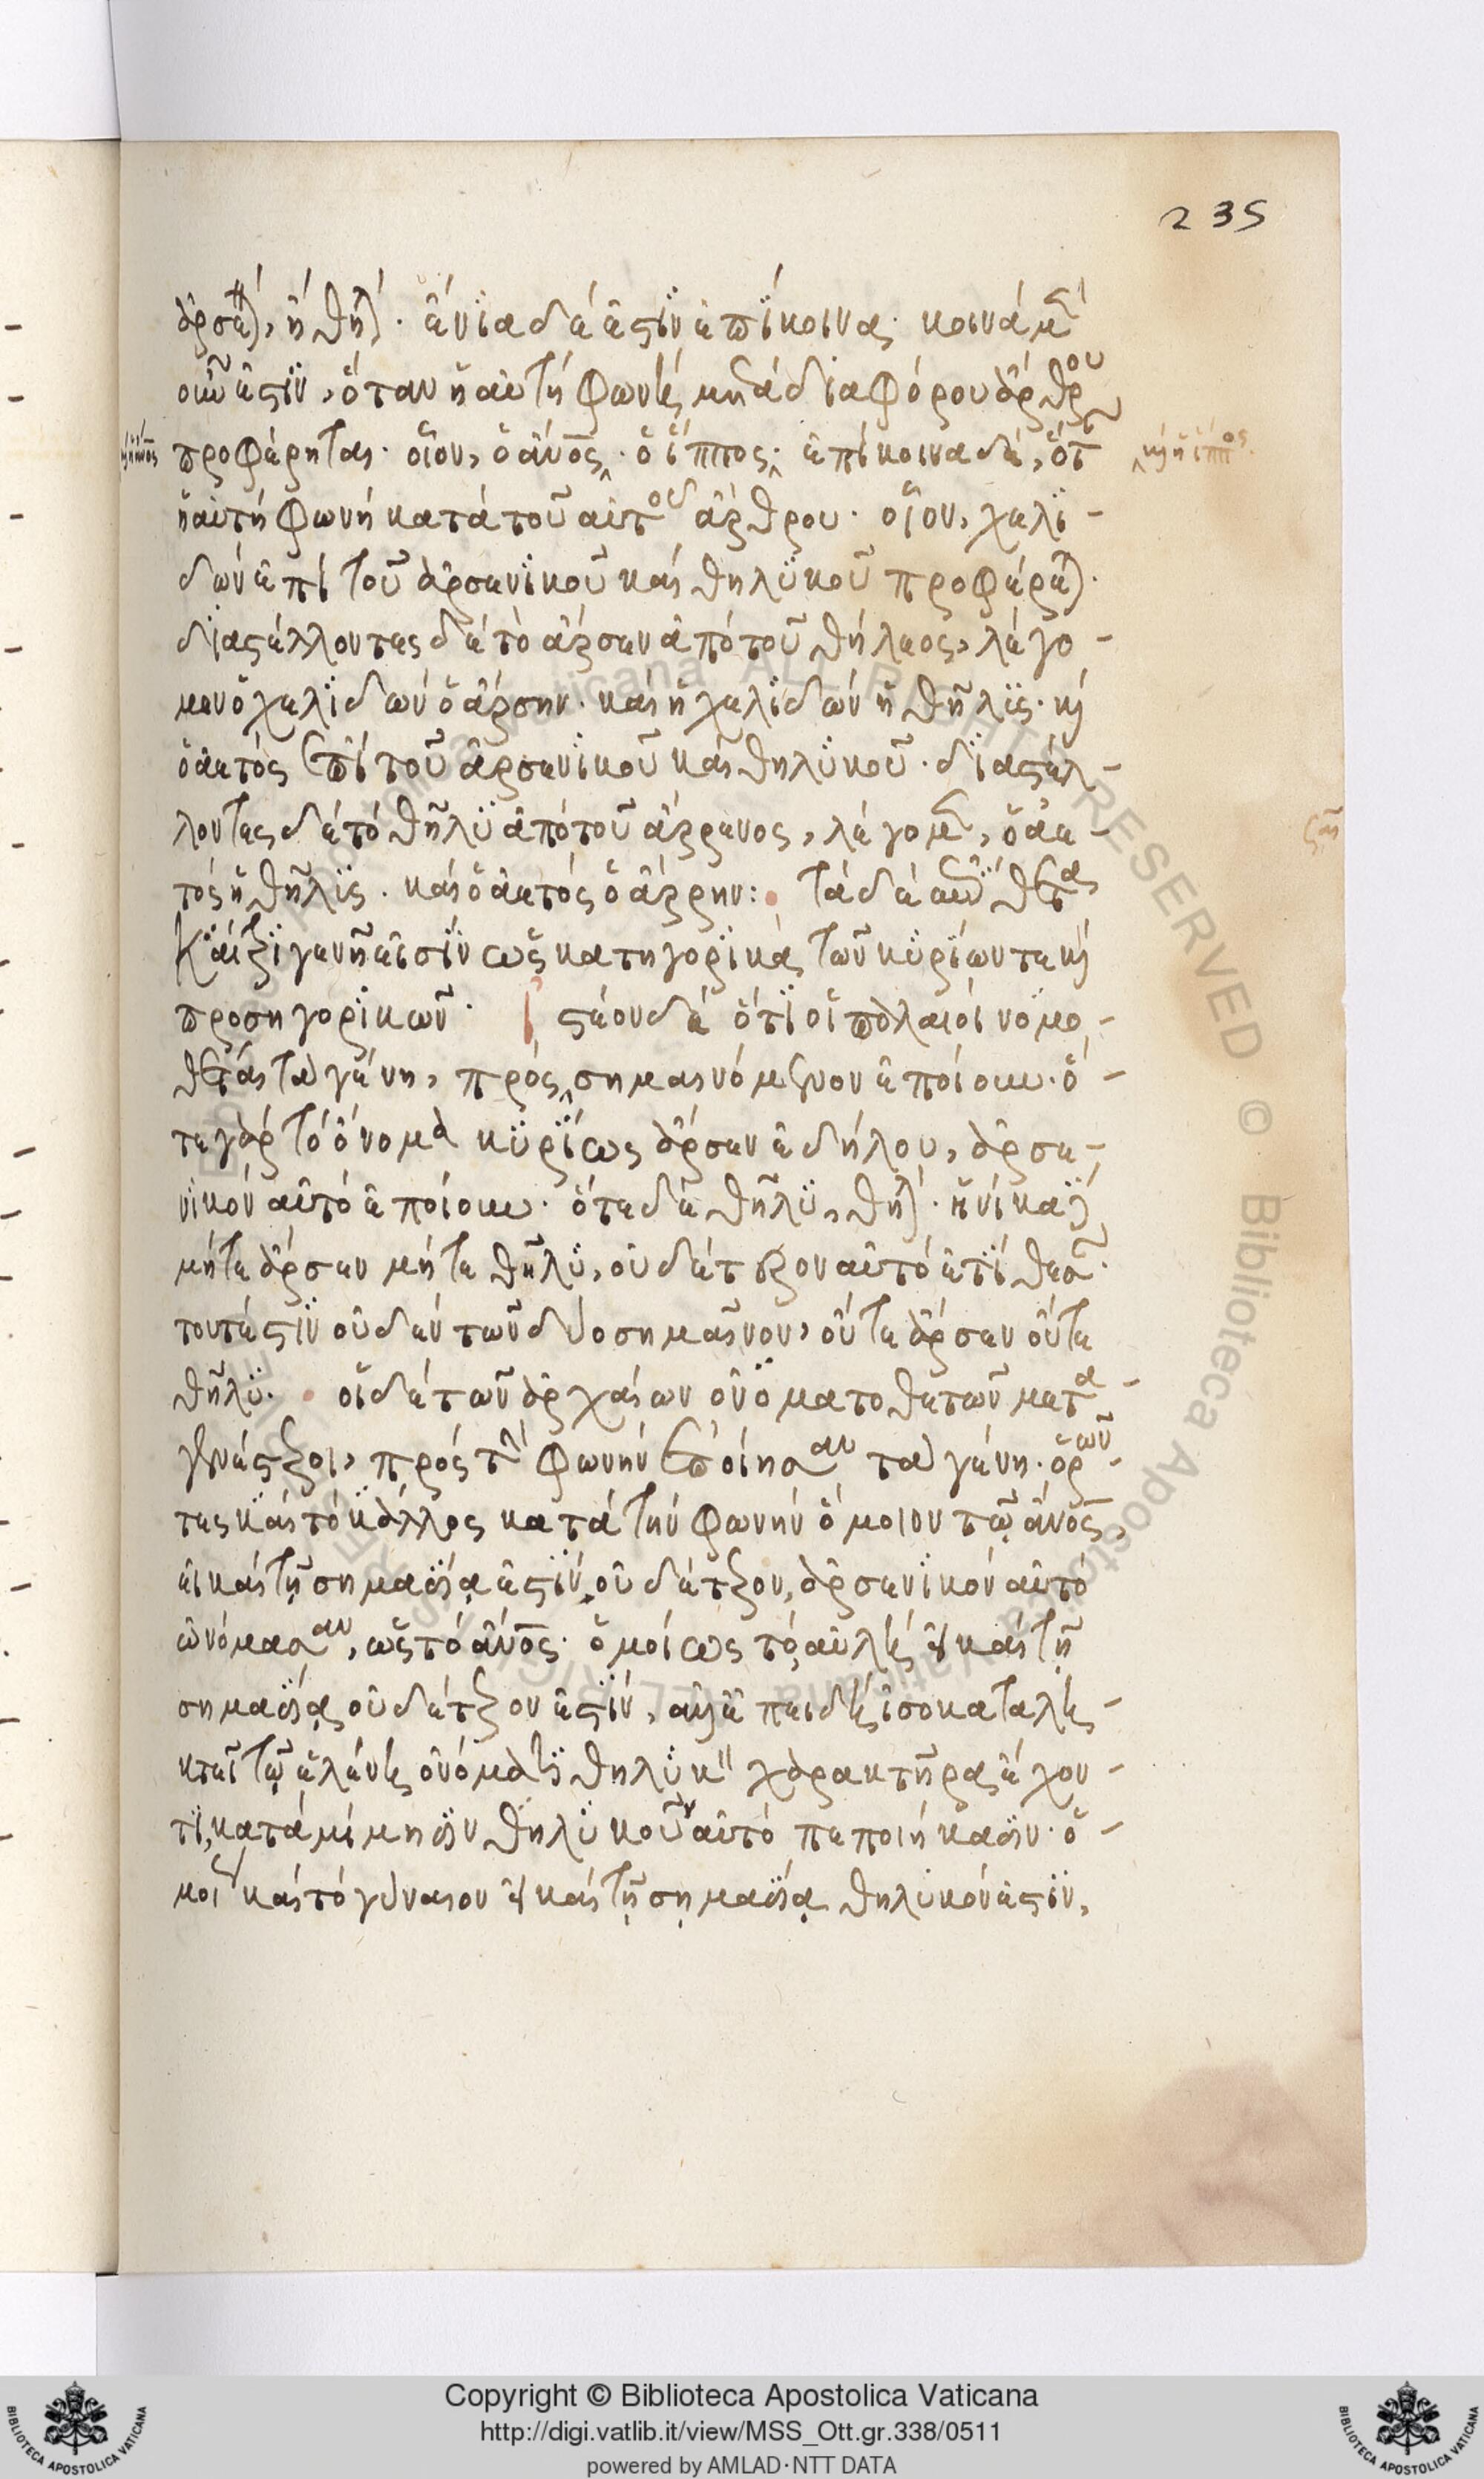 235
ἄρσεν, ἢ θῆλυ. ἔνια δέ ἐστιν ἐπίκοινα. κοινὰ μὲν
οὖν ἐστϊν, ὅταν ἡ αὐτὴ φωνὴ μετὰ διαφόρου ἄρθρου
προφέρηται. οἷον, ὁ ἄνος. ὁ ἵππος. ἐπίκοινα δέ, ὅτ
καὶ ἡ ἄνος
καὶ ἡ ἵππος.
ἡ αὐτὴ φωνὴ κατὰ τοῦ αὐτοῦ ἄρθρου. οἷον, χελϊ-
δὼν ἐπὶ τοῦ ἀρσενϊκοῦ καὶ θηλϋκοῦ προφέρεται.
διαστέλλοντες δὲ τὸ ἄρσεν ἀπὸ τοῦ θήλεος, λέγο-
μεν ὁ χελϊδὼν ὁ ἄρσην. καὶ ἡ χελϊδὼν ἡ θῆλϋς. καὶ
ὁ ἀετὸς ἐπὶ τοῦ ἀρσενϊκοῦ καὶ θηλϋκοῦ. δϊαστέλ-
λοντες δὲ τὸ θῆλϋ ἀπὸ τοῦ ἄρρενος, λέγομεν, ὁ ἀε-
τὸς ἡ θῆλϋς. καὶ ὁ ἀετὸς ὁ ἄρρην: τὰ δὲ
γένη εἰσὶν ὡς κατηγορϊκὰ τῶν κϋρίων τε καὶ
προσηγορϊκῶν. στέον δὲ ὅτϊ οἱ παλαιοὶ νομο-
θέται τὰ γένη, πρὸς σημαινόμενον ἐποίουν. ὅ-
τε γὰρ τὸ ὄνομα κϋρϊως ἄρσεν ἐδήλου, ἀρσε-
νϊκὸν αὐτὸ ἐποίουν. ὅτε δὲ θῆλϋ, θηλ. ἡνίκα δὲ
μήτε ἄρσεν μήτε θῆλϋ, οὐδέτερον αὐτὸ ἐτίθεσαν.
τουτέστϊν οὐδὲν τῶν δύο σημαῖνον, οὔτε ἄρσεν οὔτε
θῆλϋ. οἱ δὲ τῶν ἀρχαίων ὀνοματοθετῶν μετα-
γενέστεροι, πρὸς τὴν φωνὴν ἐποίησαν τὰ γένη. ὁρῶν-
τες καὶ τὸ κάλλος κατὰ τὴν φωνὴν ὅμοιον τῶ ἄνος,
εἰ καὶ τῇ σημασίᾳ ἐστὶν οὐδέτερον, ἀρσενϊκὸν αὐτὸ
ὠνόμασαν, ὡς τὸ ἄνος. ὁμοίως τὸ αὐλὴ εἰ καὶ τῇ
σημασίᾳ οὐδέτερον ἐστϊν, ἀλλ' ἐπειδὴ ἰσοκαταλη-
κτεῖ τῶ ἑλένη ὀνόματϊ θηλϋκὸν χαρακτῆρα ἔχον-
τϊ, κατὰ μίμησιν θηλϋκοῦ αὐτὸ πεποιήκασιν. ὁ-
μοίως καὶ τὸ γύναιον εἰ καὶ τῇ σημασίᾳ θηλυκόν ἐστϊν,
Copyright © Biblioteca Apostolica Vaticana
http://digi.vatlib.it/view/MSS_Ott.gr.338/0511
powered by AMLAD·NTT DATA
BIBLIOTECA APOSTOLICA VATICANA
BIBLIOTECA APOSTOLICA VATICANA